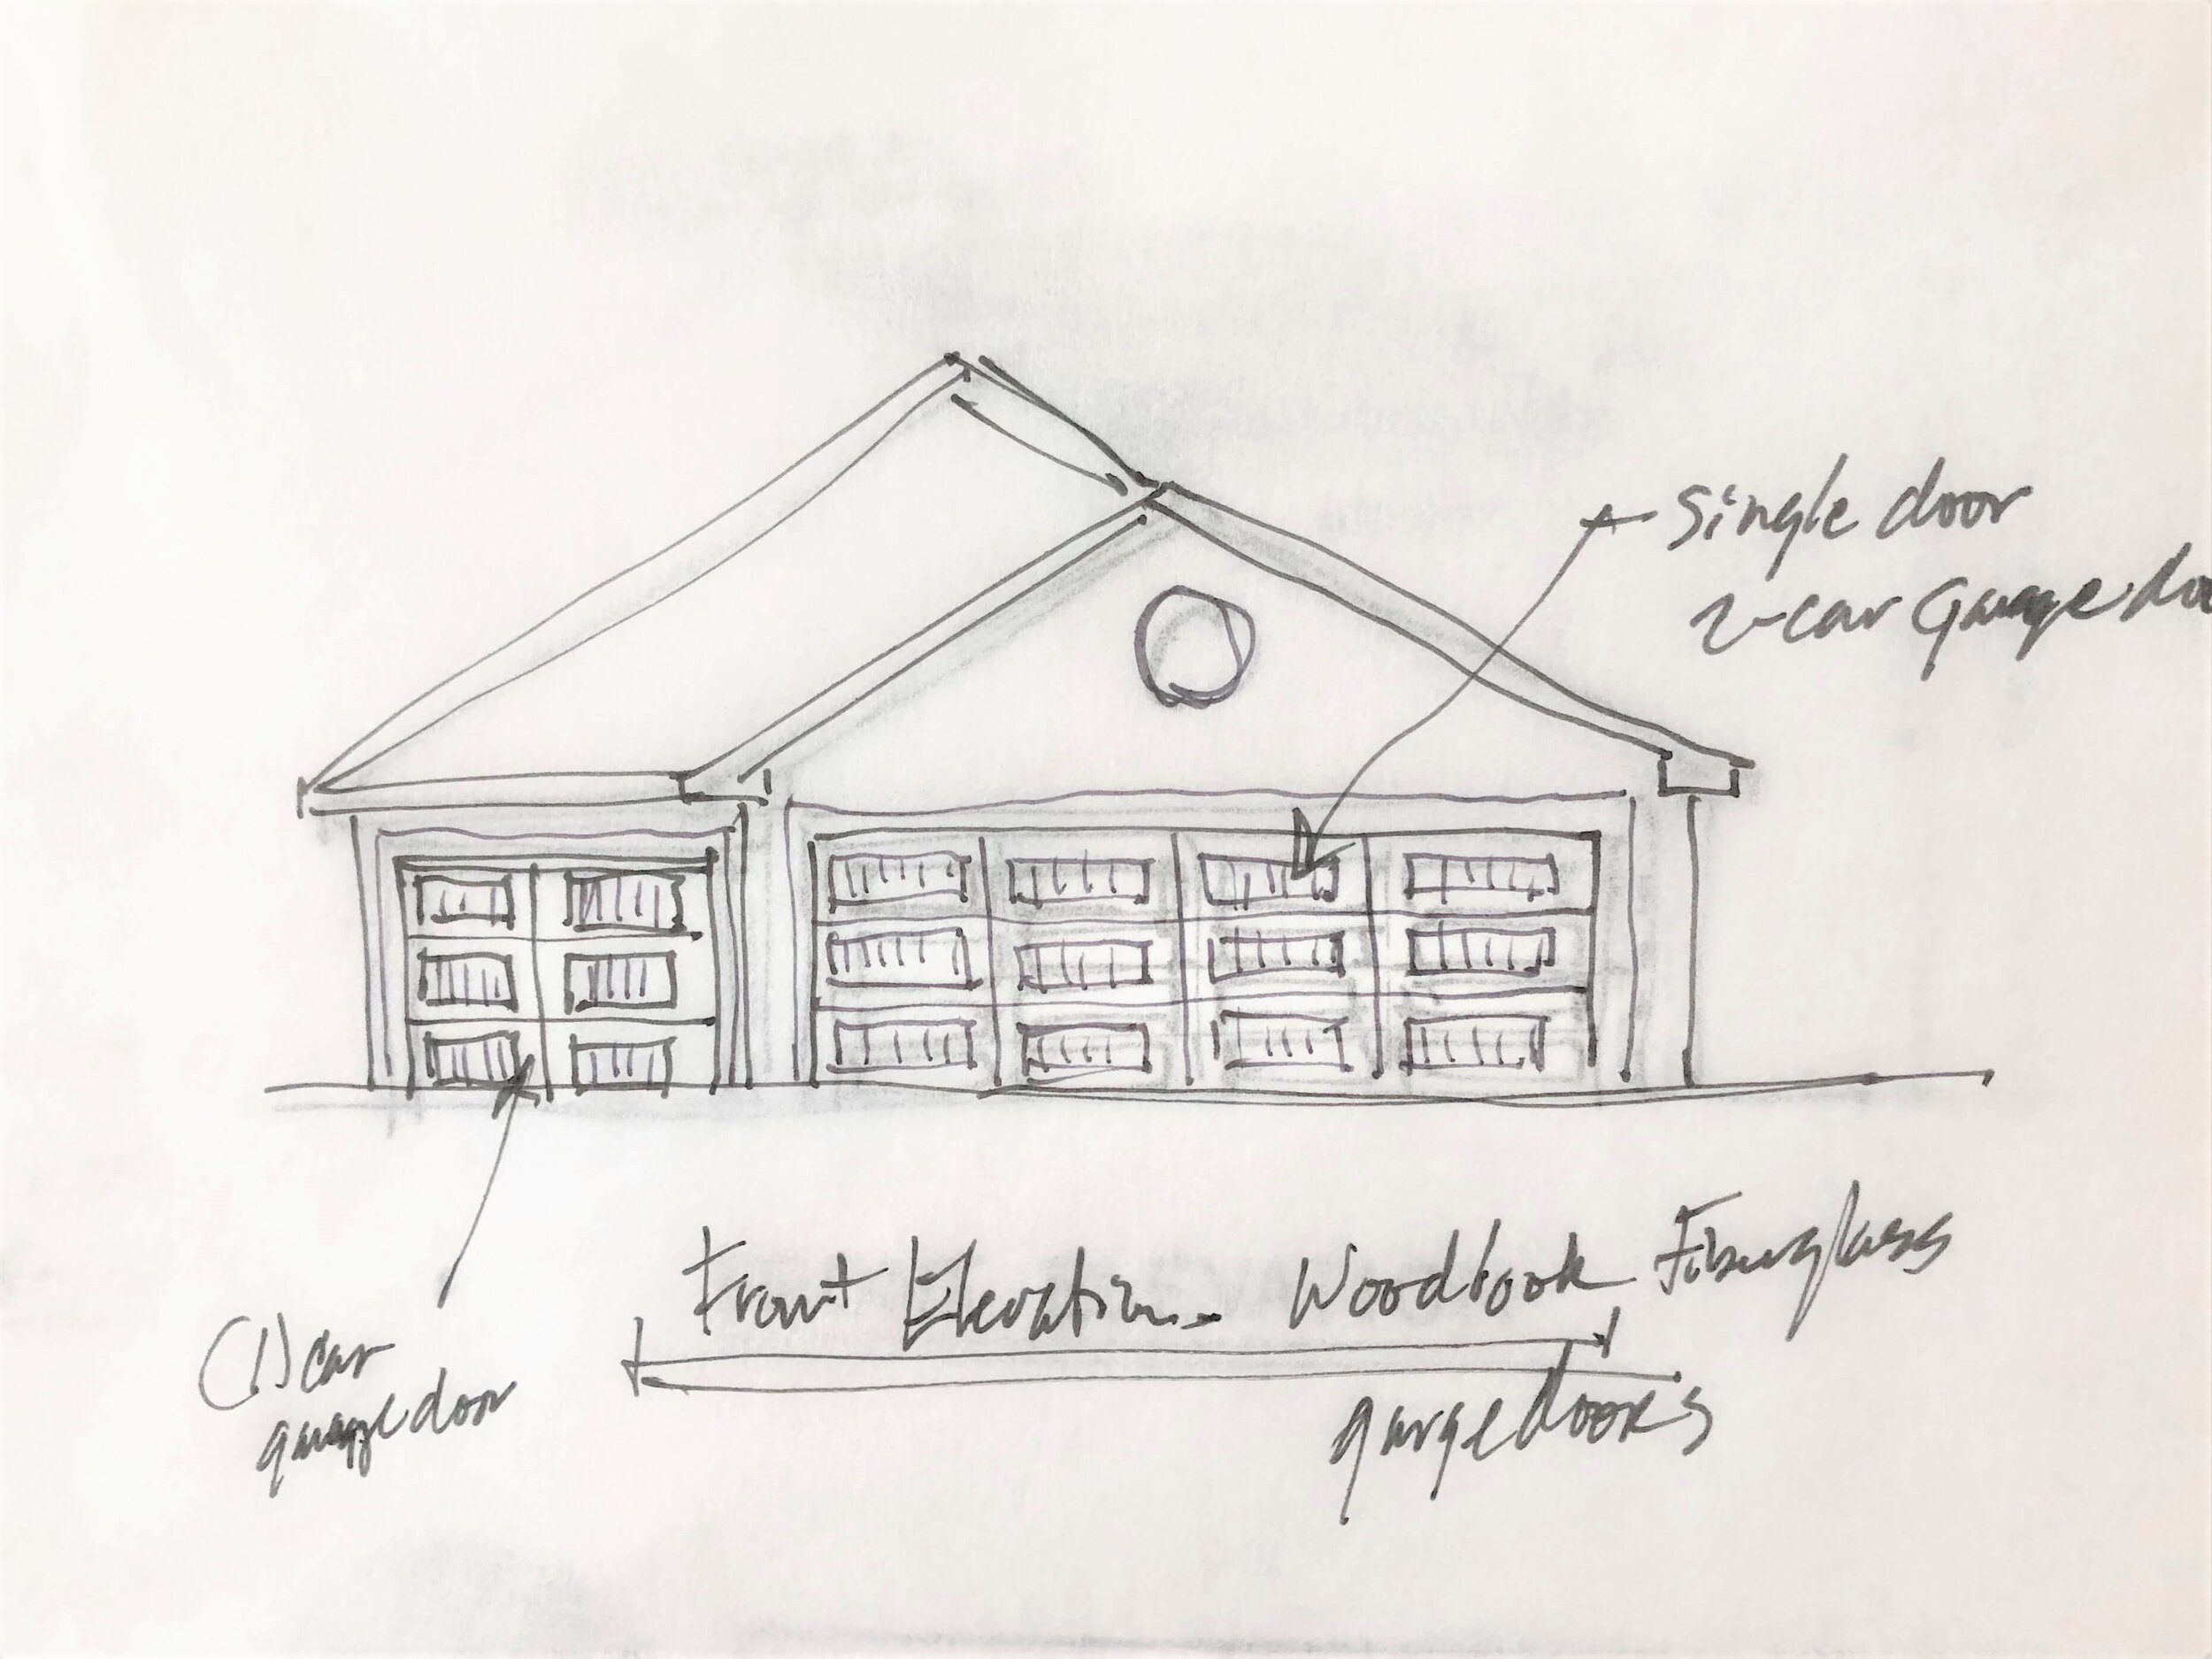 single door
2-car Garage do
Front Elevation - Woodlook Fiberglass
garge doors
(1) car
garage door